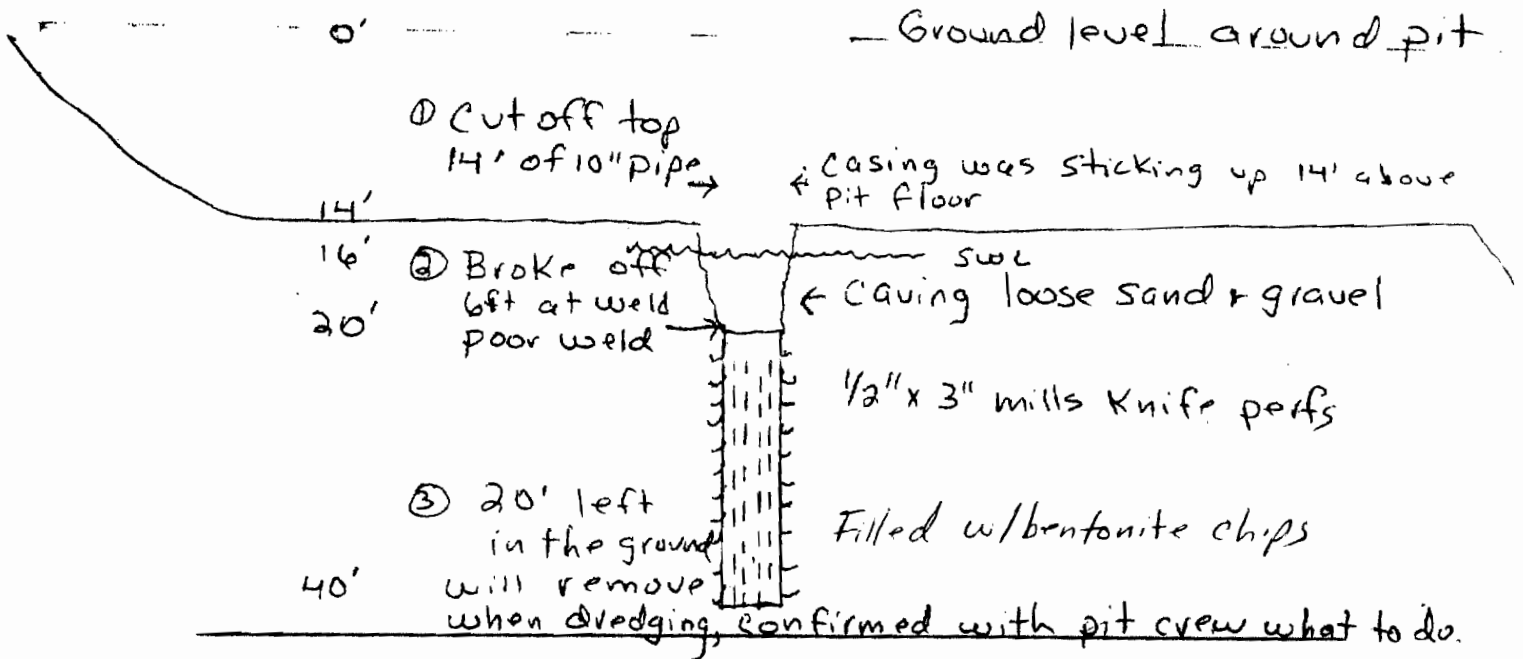 0' Ground level around pit
① Cut off top
14' of 10" pipe
casing was sticking up 14' above
pit floor
14'
16'
② Broke off
6ft at weld
poor weld
SWL
20'
Caving loose sand + gravel
1/2" x 3" mills Knife perfs
③ 20' left
in the ground
will remove
when dredging, confirmed with pit crew what to do.
Filled w/bentonite chips
40'